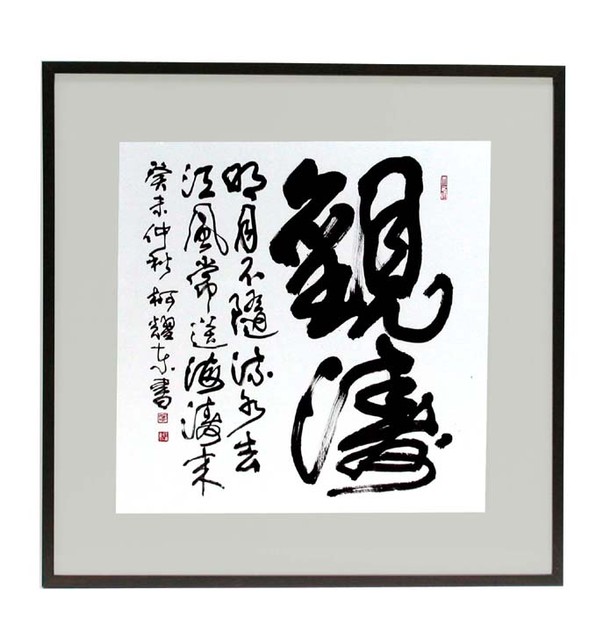 觀濤
明月不隨流水去
江風常送海濤来
癸未仲秋柯耀东書